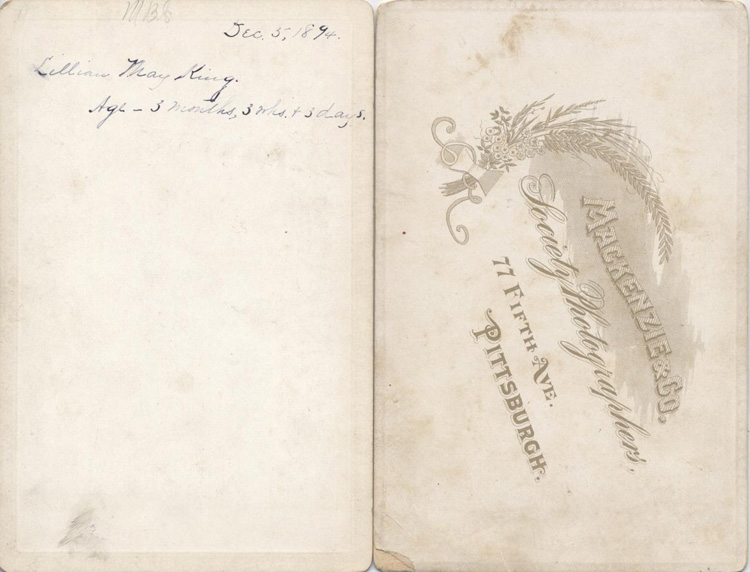 Dec. 5, 1894.
Lillian May King.
Age - 3 months, 3 wks. + 3 days.
MACKENZIE & CO.
Society Photographers.
77 FIFTH AVE.
PITTSBURGH.